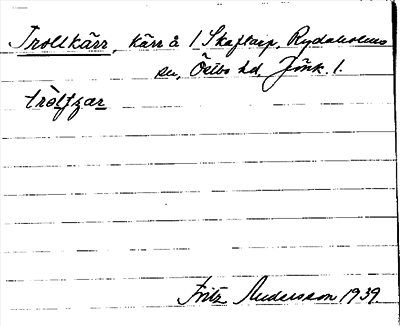 Trollkärr, kärr å 1 Skaftarp, Rydaholms
sn, Östbo hd, Jönk. l.
tròlfzar
Fritz Andersson 1939